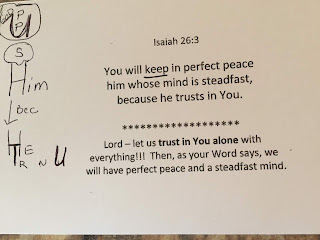 Isaiah 26:3
You will keep in perfect peace
him whose mind is steadfast,
because he trusts in You.
*******************
Lord – let us trust in You alone with
everything!!! Then, as your Word says, we
will have perfect peace and a steadfast mind.
P
U
P
S
Him
Bec
HE
T R N U